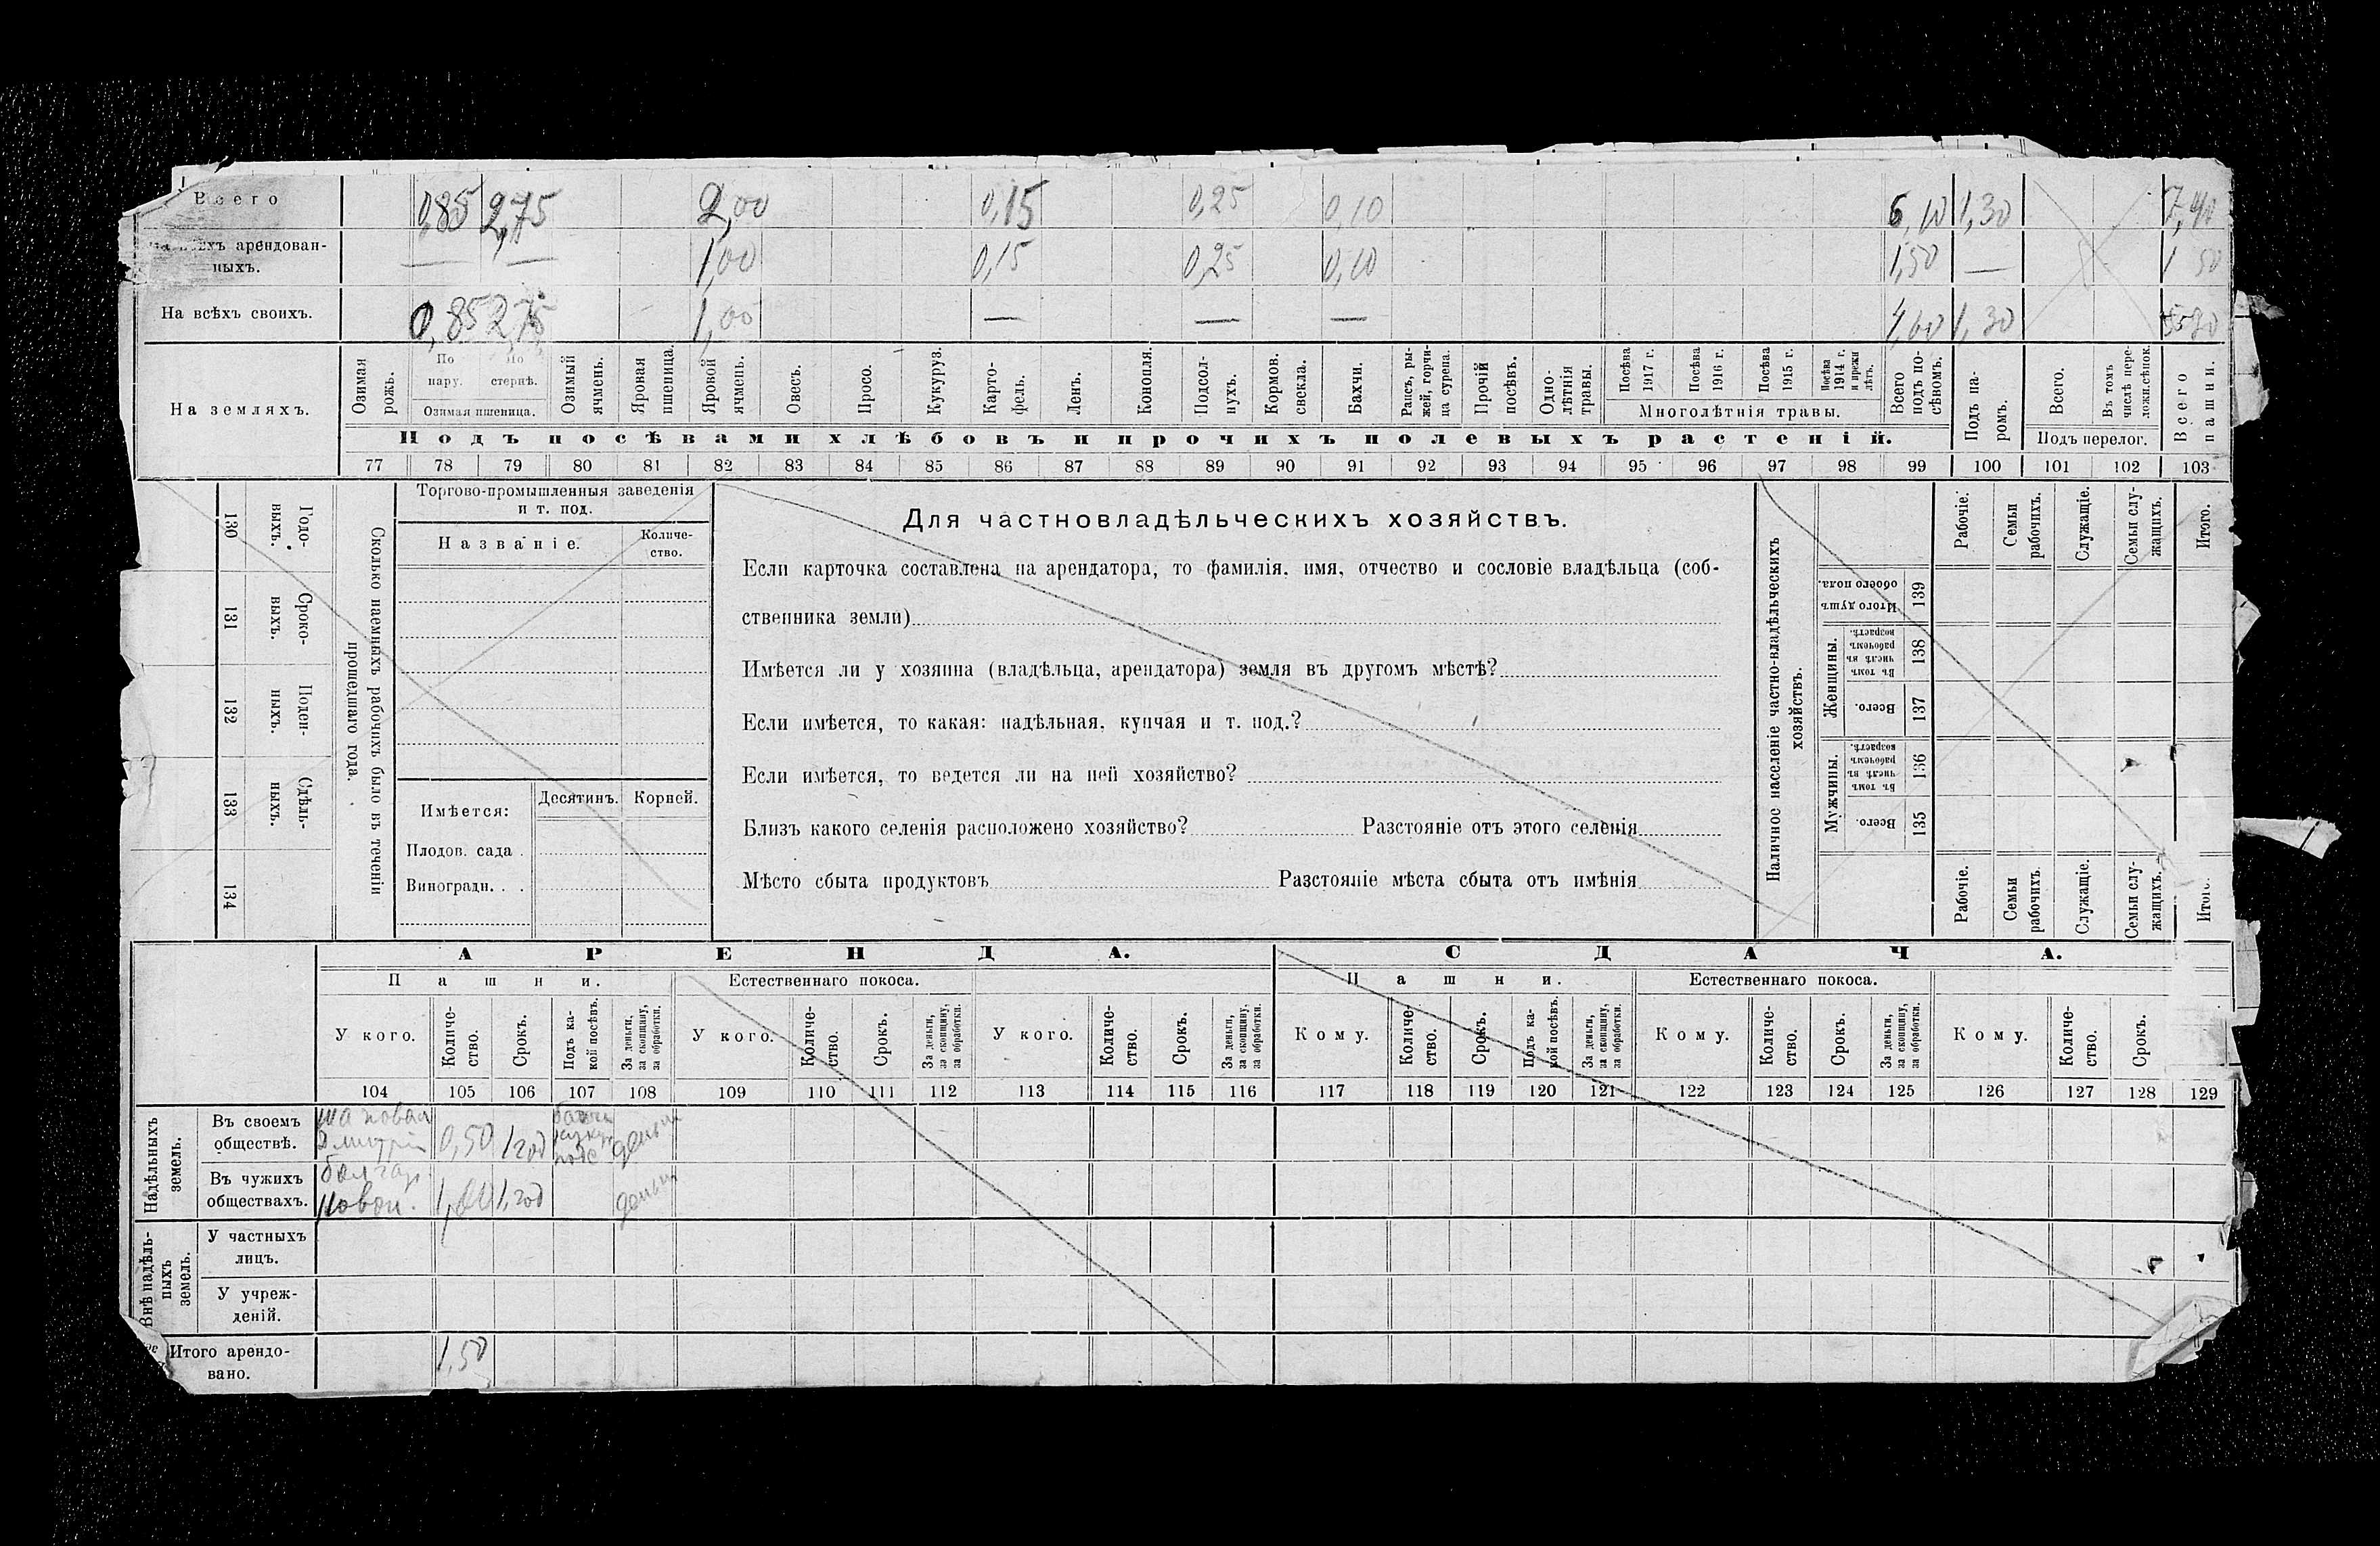 Всего 0,85 2,75 2,00 0,15 0,25 0,10 6,10 1,30 7,40
арендован-
ныхъ. — — 1,00 0,15 0,25 0,10 1,50 — 1 50
На всѣхъ своихъ. 0,85 2,75 1,00 — — — 4,60 1,30
На земляхъ.
Озимая рожь.
По пару.
По стернѣ.
Озимая пшеница.
Озимый ячмень.
Яровая пшеница.
Яровой ячмень.
Овесъ.
Просо.
Кукуруз.
Карто-
фель.
Ленъ.
Конопля.
Подсол-
нухъ.
Кормов.
свекла.
Бахчи.
Рапсъ, ры-
жей, горчи-
ца сурепа.
Прочій
посѣвъ.
Одно-
лѣтнія
травы.
Посѣва
1917 г.
Посѣва
1916 г.
Посѣва
1915 г.
Посѣва
1914 г.
и прежн
лѣтъ.
Многолѣтнія травы.
Всего
подъ по-
сѣвомъ.
Подъ па-
ромъ.
Всего.
Въ томъ
числѣ пере-
ложн.сѣнок.
Подъ перелог.
Всего
пашни.
Подъ посѣвами хлѣбовъ и прочихъ полевыхъ растеній.
77 78 79 80 81 82 83 84 85 86 87 88 89 90 91 92 93 94 95 96 97 98 99 100 101 102 103
130 Годо-
выхъ.
131 Сроко-
выхъ.
132 Поден-
ныхъ.
133 Сдѣль-
ныхъ.
134
Сколько наемныхъ рабочихъ было въ теченіи
прошедшаго года.
Торгово-промышленныя заведенія
и т. под.
Названіе.
Количе-
ство.
Имѣется:
Десятинъ.
Корней.
Плодов. сада .
Виноградн. . .
Для частновладѣльческихъ хозяйствъ.
Если карточка составлена на арендатора, то фамилія, имя, отчество и сословіе владѣльца (соб-
ственника земли)
Имѣется ли у хозяина (владѣльца, арендатора) земля въ другомъ мѣстѣ?
Если имѣется, то какая: надѣльная, купчая и т. под.?
Если имѣется, то ведется ли на ней хозяйство?
Близъ какого селенія расположено хозяйство? Разстояніе отъ этого селенія
Мѣсто сбыта продуктовъ Разстояніе мѣста сбыта отъ имѣнія
Наличное населеніе частно-владѣльческихъ
хозяйствъ.
Итого душъ
обоего пола. 139
Женщины.
Въ томъ
числѣ въ
рабочемъ
возрастѣ. 138
Всего. 137
Мужчины.
Въ томъ
числѣ въ
рабочемъ
возрастѣ. 136
Всего. 135
Рабочіе.
Семьи
рабочихъ.
Служащіе.
Семьи слу-
жащихъ.
Итого.
Рабочіе.
Семьи
рабочихъ.
Служащіе.
Семьи слу-
жащихъ.
Итого.
АРЕНДА. СДАЧА.
Пашни. Естественнаго покоса. Пашни. Естественнаго покоса.
У кого.
Количе-
ство.
Срокъ.
Подъ ка-
кой посѣвъ.
За деньги,
за скопщину,
за обработки.
У кого.
Количе-
ство.
Срокъ.
За деньги,
за скопщину,
за обработки.
У кого.
Количе-
ство.
Срокъ.
За деньги,
за скопщину,
за обработки.
Кому.
Количе-
ство.
Срокъ.
Подъ ка-
кой посѣвъ.
За деньги,
за скопщину,
за обработки.
Кому.
Количе-
ство.
Срокъ.
За деньги,
за скопщину,
за обработки.
Кому.
Количе-
ство.
Срокъ.
104 105 106 107 108 109 110 111 112 113 114 115 116 117 118 119 120 121 122 123 124 125 126 127 128 129
Надѣльныхъ
земель.
Въ своемъ
обществѣ.
Дмитрій 0,50 1 год деньги
Въ чужихъ
обществахъ.
1,00 1 год деньги
Внѣ надѣль-
ныхъ
земель.
У частныхъ
лицъ.
У учреж-
деній.
Итого арендо-
вано. 1,50